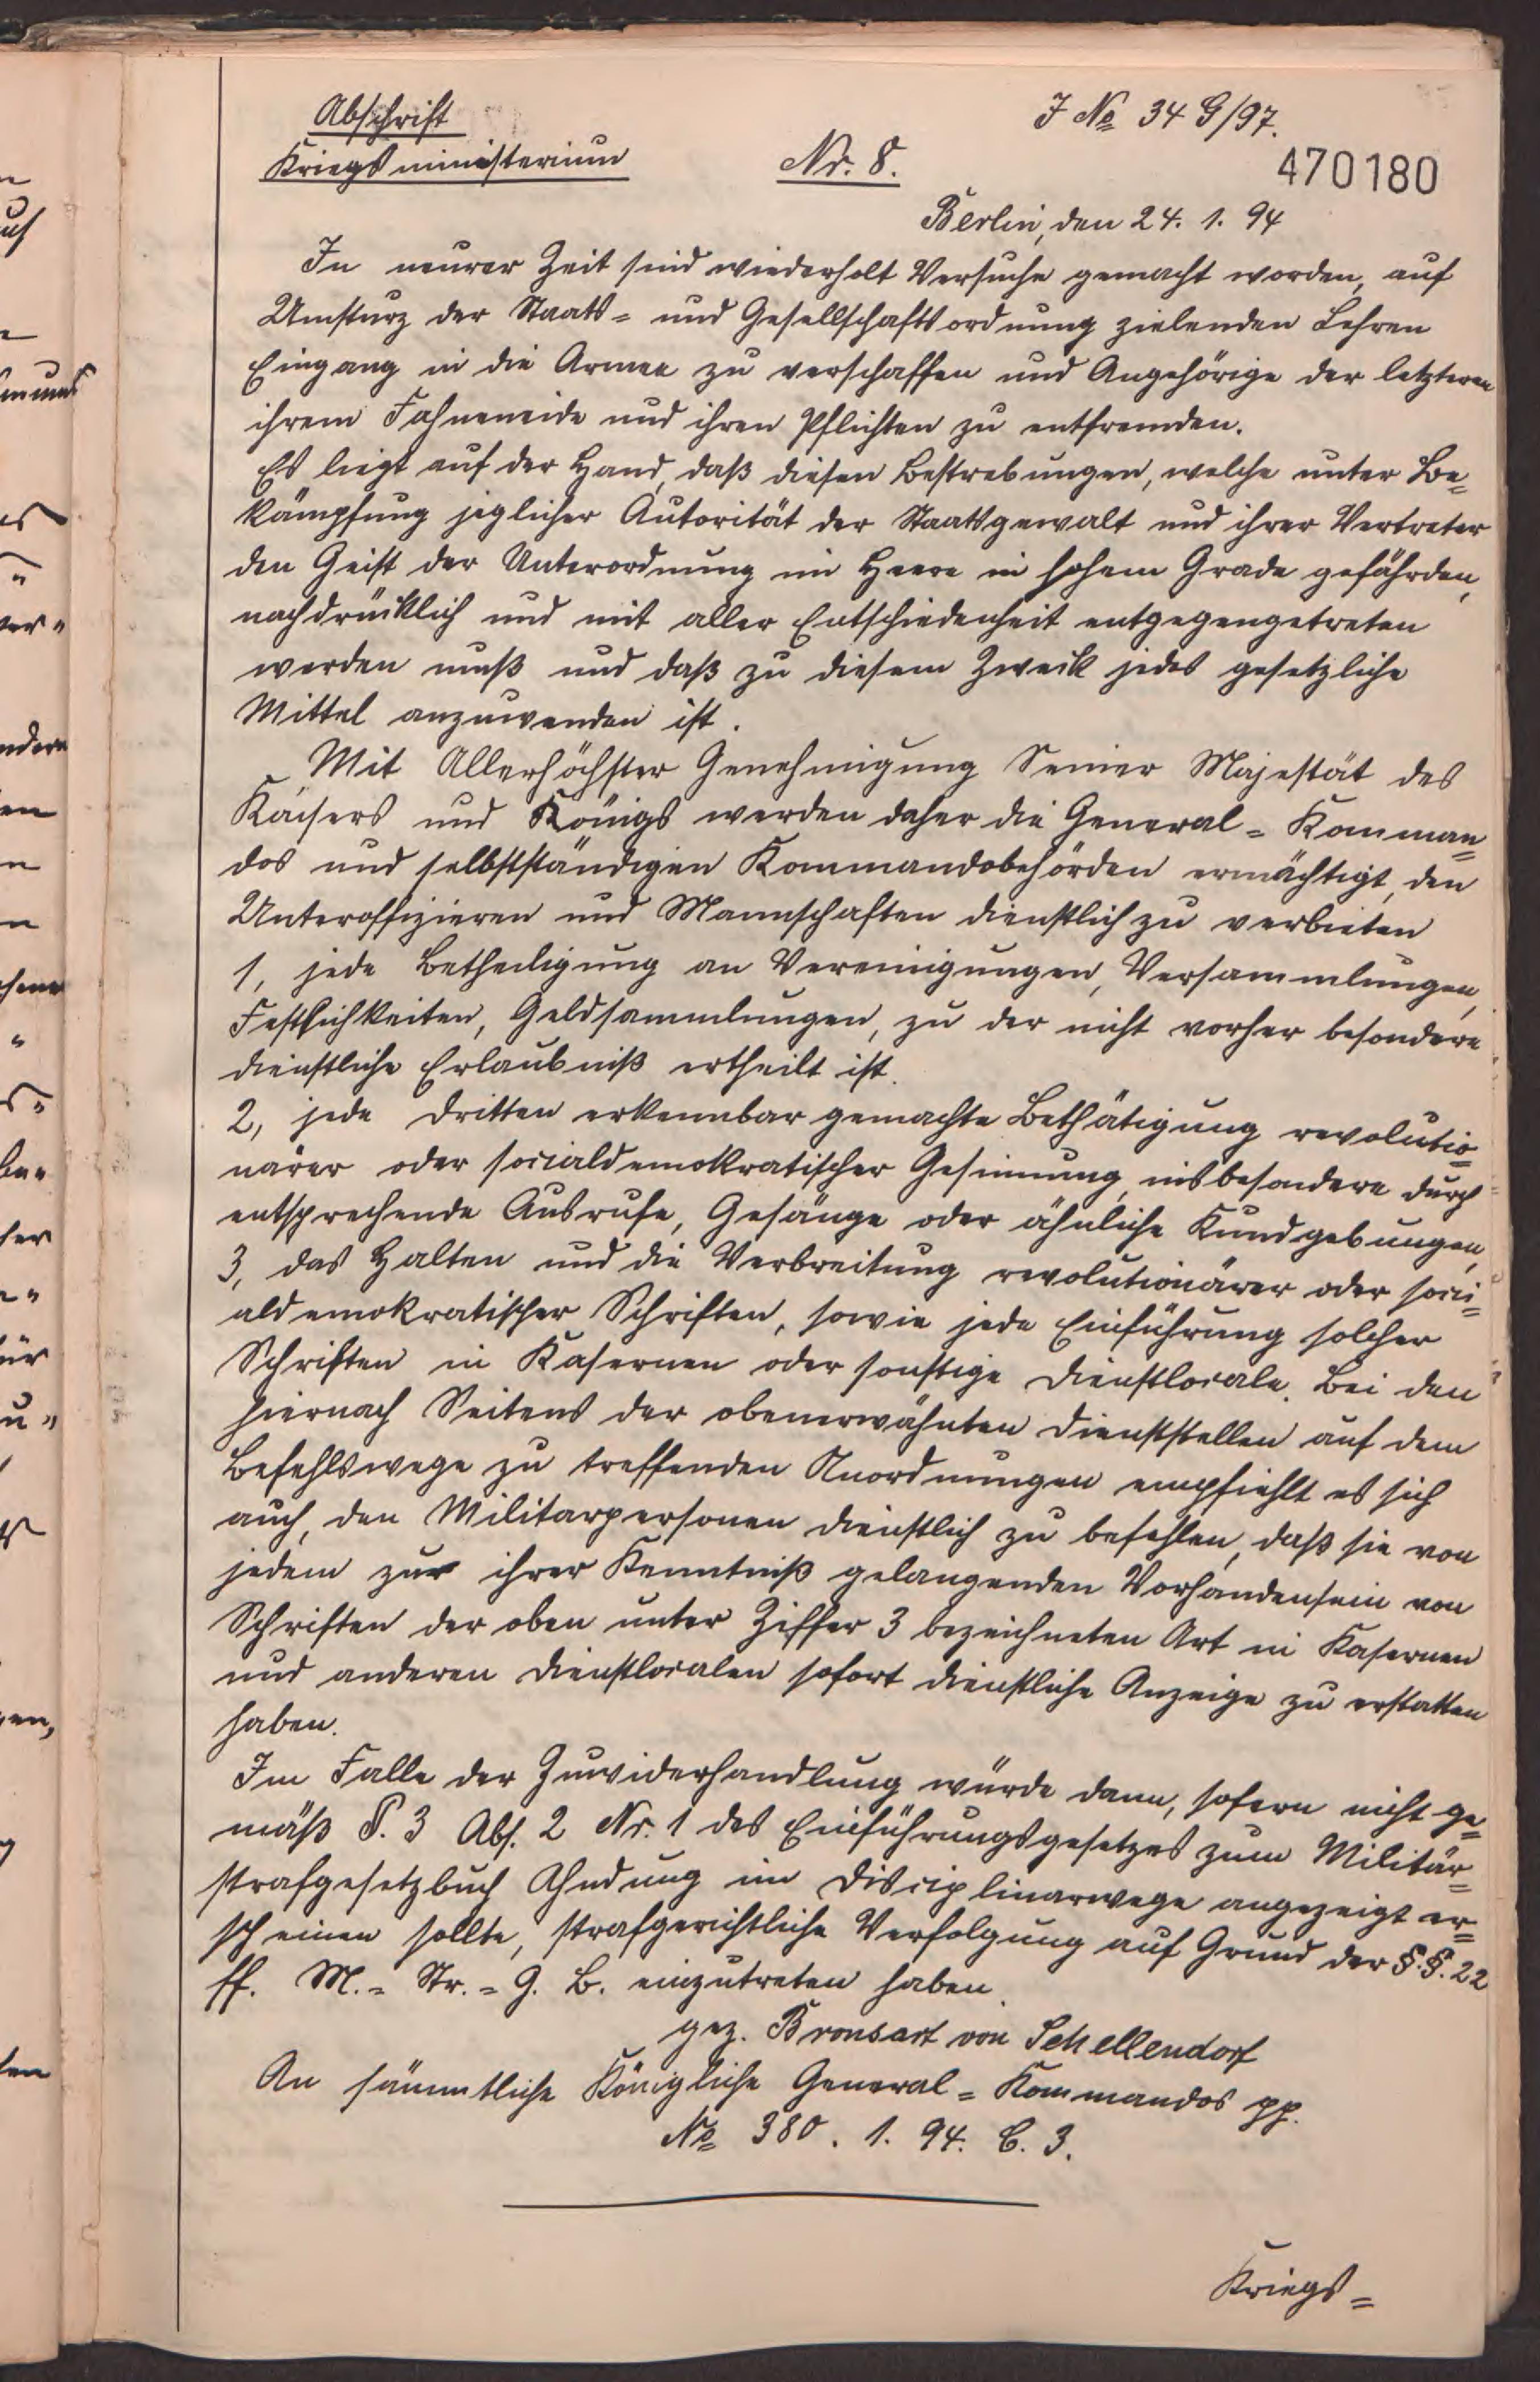 Abschrift
J № 34 G/97.
Kriegsministerium
Nr. 8.
470180
Berlin, den 24. 1. 94
In neurer Zeit sind wiederholt Versuche gemacht worden, auf
Umsturz der Staats= und Gesellschaftsordnung zielenden Lehren
Eingang in die Armee zu verschaffen und Angehörige der letzteren
ihrem Fahneneide und ihren Pflichten zu entfremden.
Es liegt auf der Hand, daß diesen Bestrebungen, welche unter Be=
kämpfung jeglicher Autorität der Staatsgewalt und ihrer Vertreter
den Geist der Unterordnung im Heere in hohem Grade gefährden,
nachdrücklich und mit aller Entschiedenheit entgegengetreten
werden muß und daß zu diesem Zweck jedes gesetzliche
Mittel anzuwenden ist.
Mit Allerhöchster Genehmigung Seiner Majestät des
Kaisers und Königs werden daher die General= Komman=
dos und selbstständigen Kommandobehörden ermächtigt, den
Unteroffizieren und Mannschaften dienstlich zu verbieten
1, jede Betheiligung an Vereinigungen, Versammlungen,
Festlichkeiten, Geldsammlungen, zu der nicht vorher besondere
dienstliche Erlaubniß ertheilt ist.
2, jede Dritten erkennbar gemachte Bethätigung revolutio=
närer oder socialdemokratischer Gesinnung, insbesondere durch
entsprechende Ausrufe, Gesänge oder ähnliche Kundgebungen,
3, das Halten und die Verbreitung revolutionärer oder soci=
aldemokratischer Schriften, sowie jede Einführung solcher
Schriften in Kasernen oder sonstige Dienstlocale. Bei den
hiernach Seitens der obenerwähnten Dienststellen auf dem
Befehlswege zu treffenden Anordnungen empfiehlt es sich
auch, den Militarpersonen dienstlich zu befehlen, daß sie von
jedem zur ihrer Kenntniß gelangenden Vorhandensein von
Schriften der oben unter Ziffer 3 bezeichneten Art in Kasernen
und anderen Dienstlocalen sofort dienstliche Anzeige zu erstatten
haben.
Im Falle der Zuwiderhandlung würde dann, sofern nicht ge=
mäß §. 3 Abs. 2 Nr. 1 des Einführungsgesetzes zum Militär=
strafgesetzbuch Ahndung im Disciplinarwege angezeigt er=
scheinen sollte, strafgerichtliche Verfolgung auf Grund der §.§. 22
ff. M.= Str.= G. B. einzutreten haben.
gez. Bronsart von Schellendorf
An sämmtliche Königliche General= Kommandos pp.
№ 380. 1. 94. C. 3.
Kriegs=